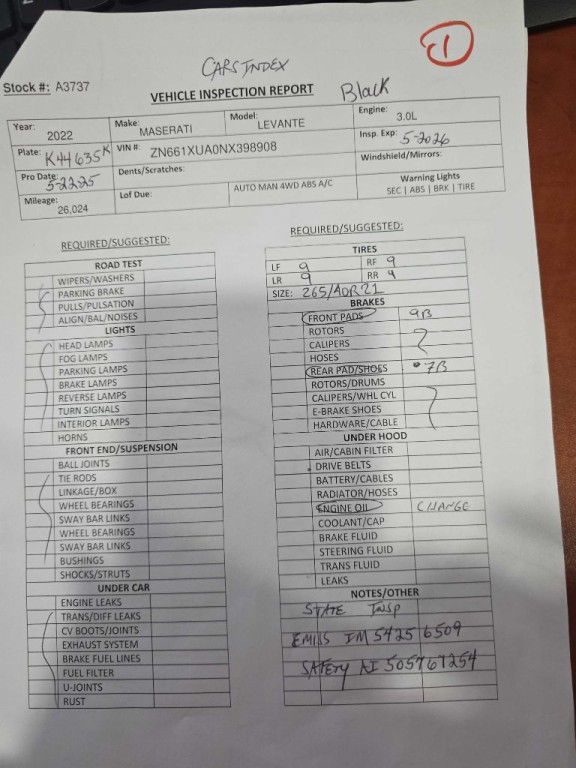 1
CARS INDEX
Stock #: A3737
VEHICLE INSPECTION REPORT
Black
Year: 2022 Make: MASERATI Model: LEVANTE Engine: 3.0L
Plate: K44635K VIN #: ZN661XUA0NX398908 Insp. Exp: 5-2026
Pro Date: 5-22-25 Dents/Scratches: Windshield/Mirrors:
Mileage: 26,024 Lof Due: AUTO MAN 4WD ABS A/C Warning Lights
SEC | ABS | BRK | TIRE
REQUIRED/SUGGESTED:
ROAD TEST
WIPERS/WASHERS
PARKING BRAKE
PULLS/PULSATION
ALIGN/BAL/NOISES
LIGHTS
HEAD LAMPS
FOG LAMPS
PARKING LAMPS
BRAKE LAMPS
REVERSE LAMPS
TURN SIGNALS
INTERIOR LAMPS
HORNS
FRONT END/SUSPENSION
BALL JOINTS
TIE RODS
LINKAGE/BOX
WHEEL BEARINGS
SWAY BAR LINKS
WHEEL BEARINGS
SWAY BAR LINKS
BUSHINGS
SHOCKS/STRUTS
UNDER CAR
ENGINE LEAKS
TRANS/DIFF LEAKS
CV BOOTS/JOINTS
EXHAUST SYSTEM
BRAKE FUEL LINES
FUEL FILTER
U-JOINTS
RUST
REQUIRED/SUGGESTED:
TIRES
LF 9 RF 9
LR 9 RR 9
SIZE: 265/40R21
BRAKES
FRONT PADS 9B
ROTORS
CALIPERS
HOSES
REAR PAD/SHOES 7B
ROTORS/DRUMS
CALIPERS/WHL CYL
E-BRAKE SHOES
HARDWARE/CABLE
UNDER HOOD
AIR/CABIN FILTER
DRIVE BELTS
BATTERY/CABLES
RADIATOR/HOSES
ENGINE OIL CHANGE
COOLANT/CAP
BRAKE FLUID
STEERING FLUID
TRANS FLUID
LEAKS
NOTES/OTHER
STATE INSP
EMISS IM 54256509
SAFETY AI 505767254